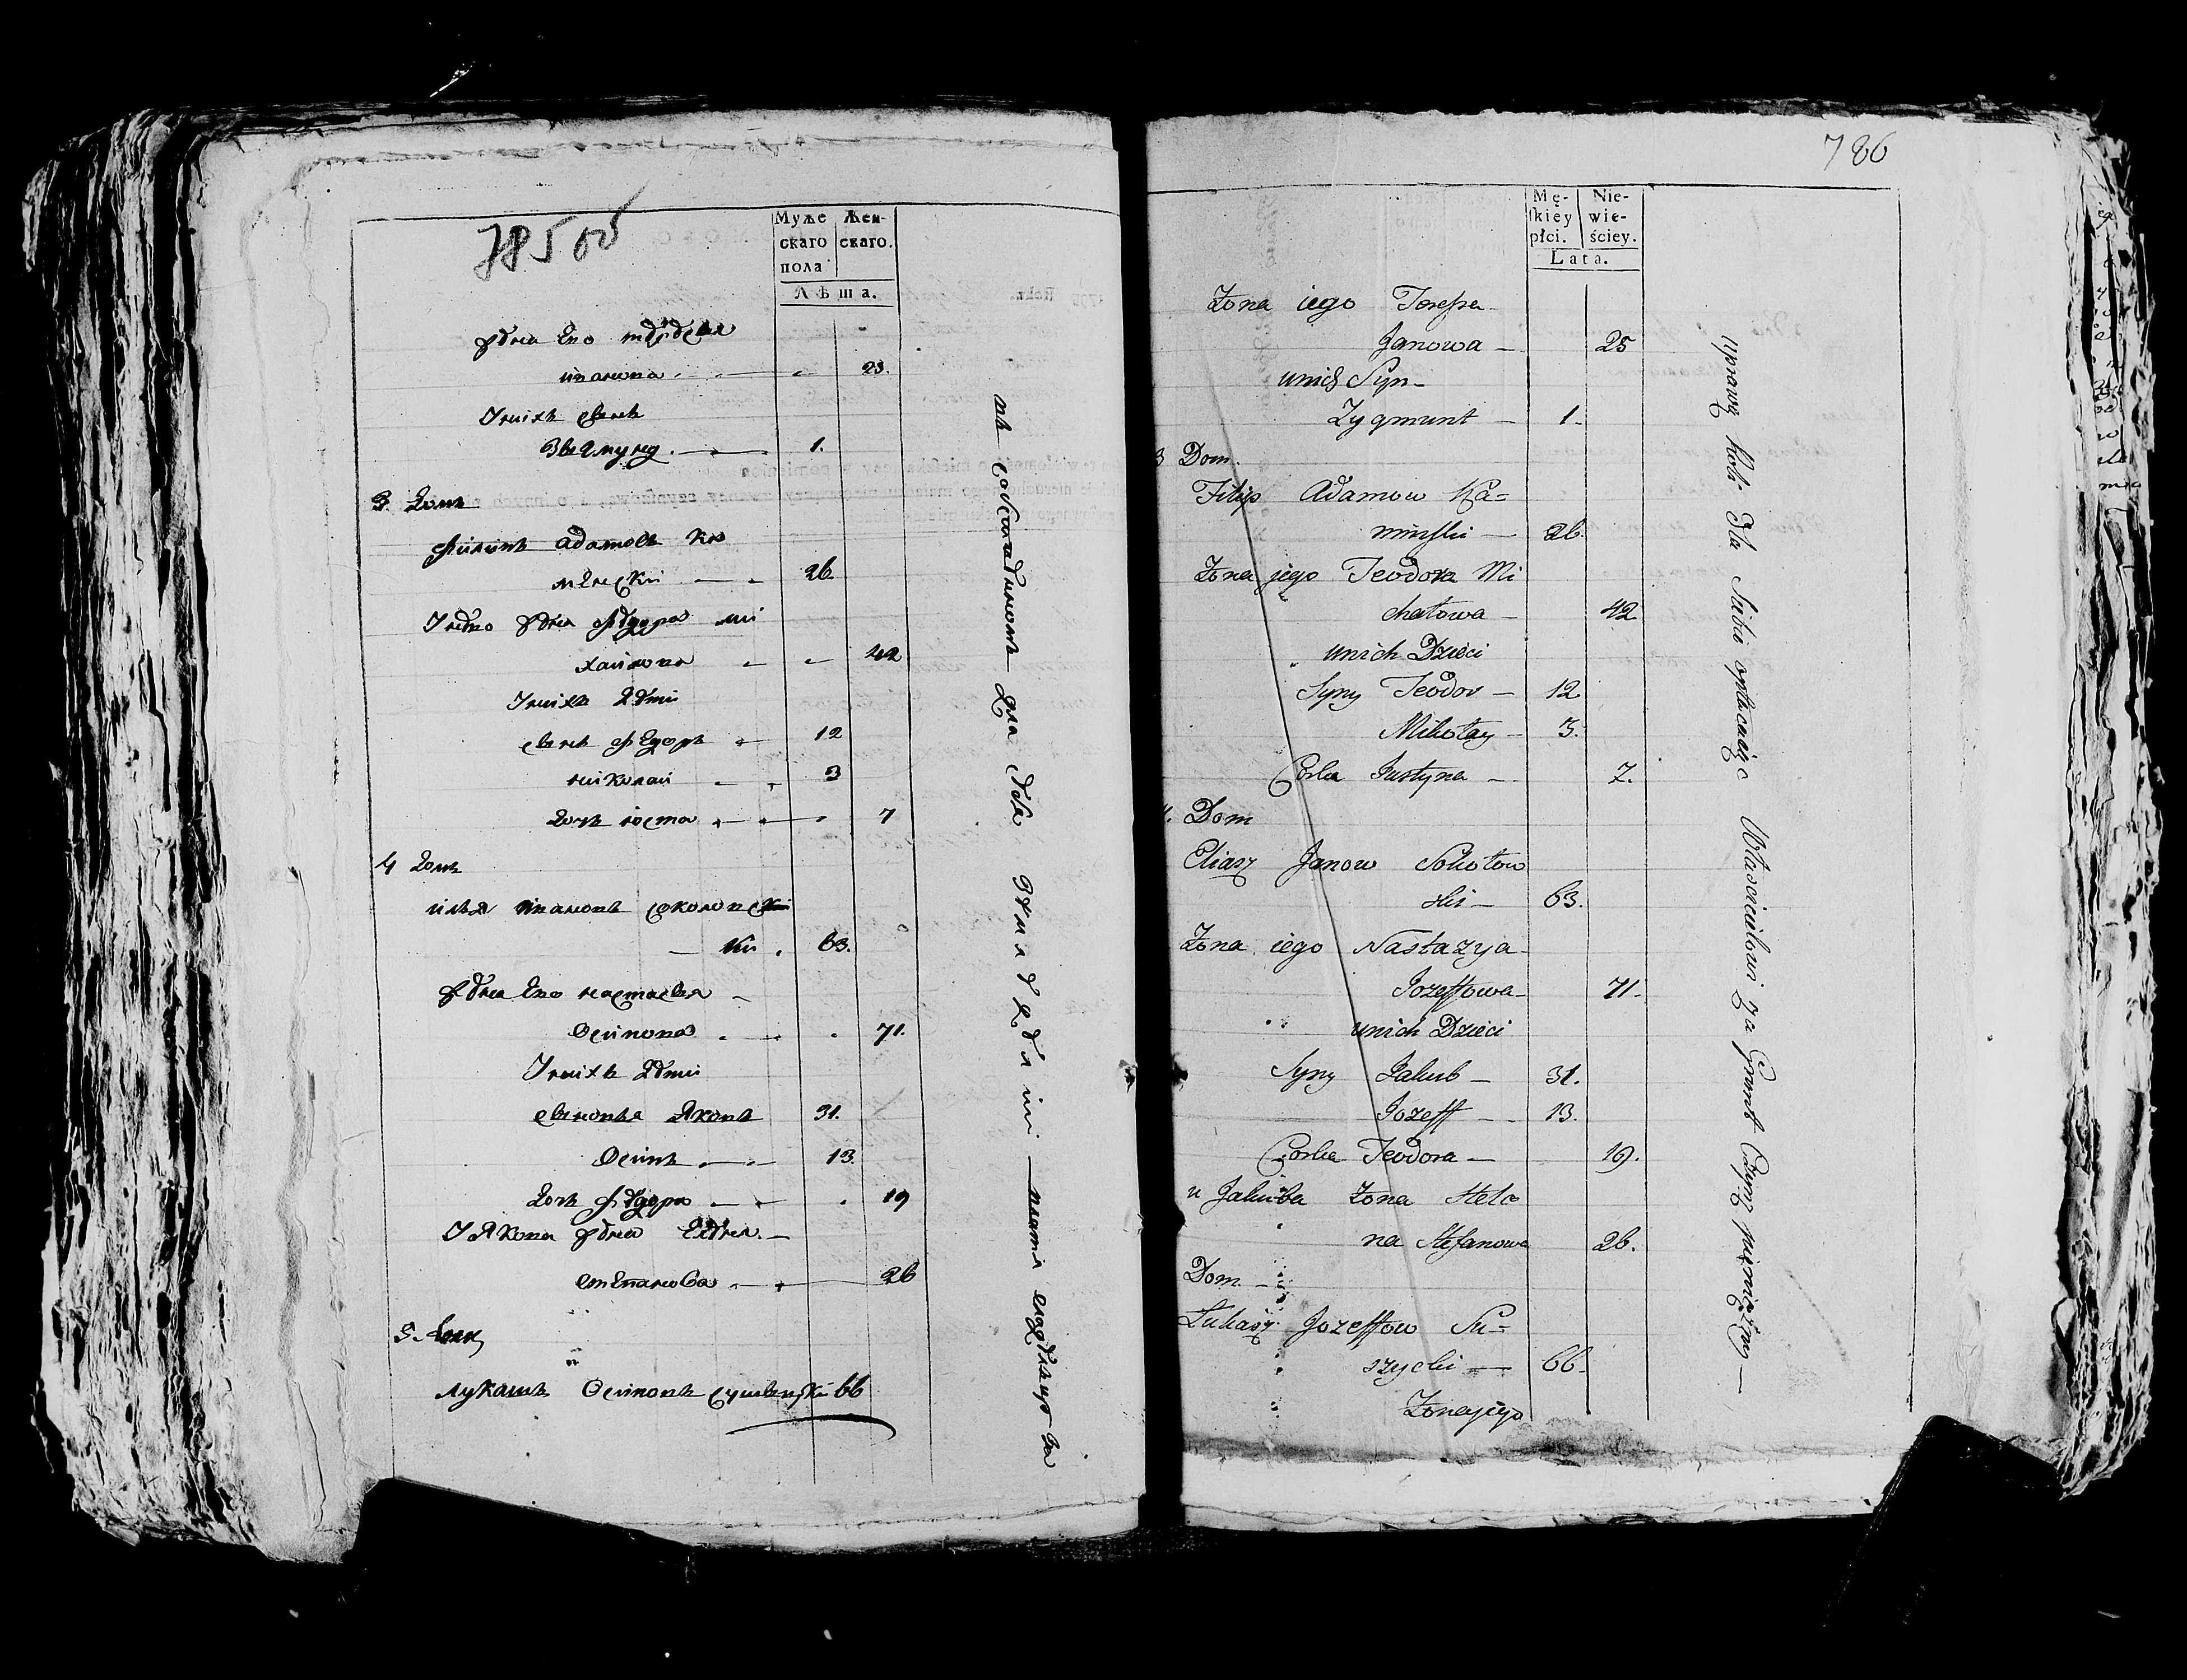 785 об
Муже
скаго
пола
Жен-
скаго.
Лѣта.
жена ево
ивановна 23.
У них сынъ
Зыгмунд 1.
3 домъ
Филипъ адамовъ ка
менски 26
У нево жена федора ми
хайловна 42
У них дети
сынъ федоръ 12
николаи 3
дочь 7
4 домъ
илья ивановъ соколовс
ки 63.
жена ево настасья
Осипова 71.
У них дети
сыновья Яковъ 31.
Осипъ 13
дочь федора 19
У Якова жена елена
степанова 26
5. домъ
лукашъ Осиповъ сушыцки 66
для себя земли платя
786
Mę-
ſkiey
płci.
Nie-
wie-
ściey.
Lata.
Zona iego Teressa
Janowa — 25
unich Syn —
Zygmunt — 1.
3 Dom.
Filip Adamow Ka=
minski — 26.
Zona jego Teodora Mi
chałowa — 42
unich Dzieci
Syny Teodor — 12
Mikołay — 3.
Corka Justyna — 7.
4. Dom
Eliasz Janow Sokołow
ski — 63.
Zona iego Nastazya
Jozeffowa — 71.
unich Dzieci
Syny Jakub — 31.
Jozeff — 13.
Corka Teodora — 19.
u Jakuba Zona Hele
na Stefanowa 26.
Dom. —
Łukasz Jozeffow Su=
szycki — 66.
Zona jego
uprawą Roli dla Siebie opłacaiąc Włascicielowi za Grunt Czynsz pieniężny —